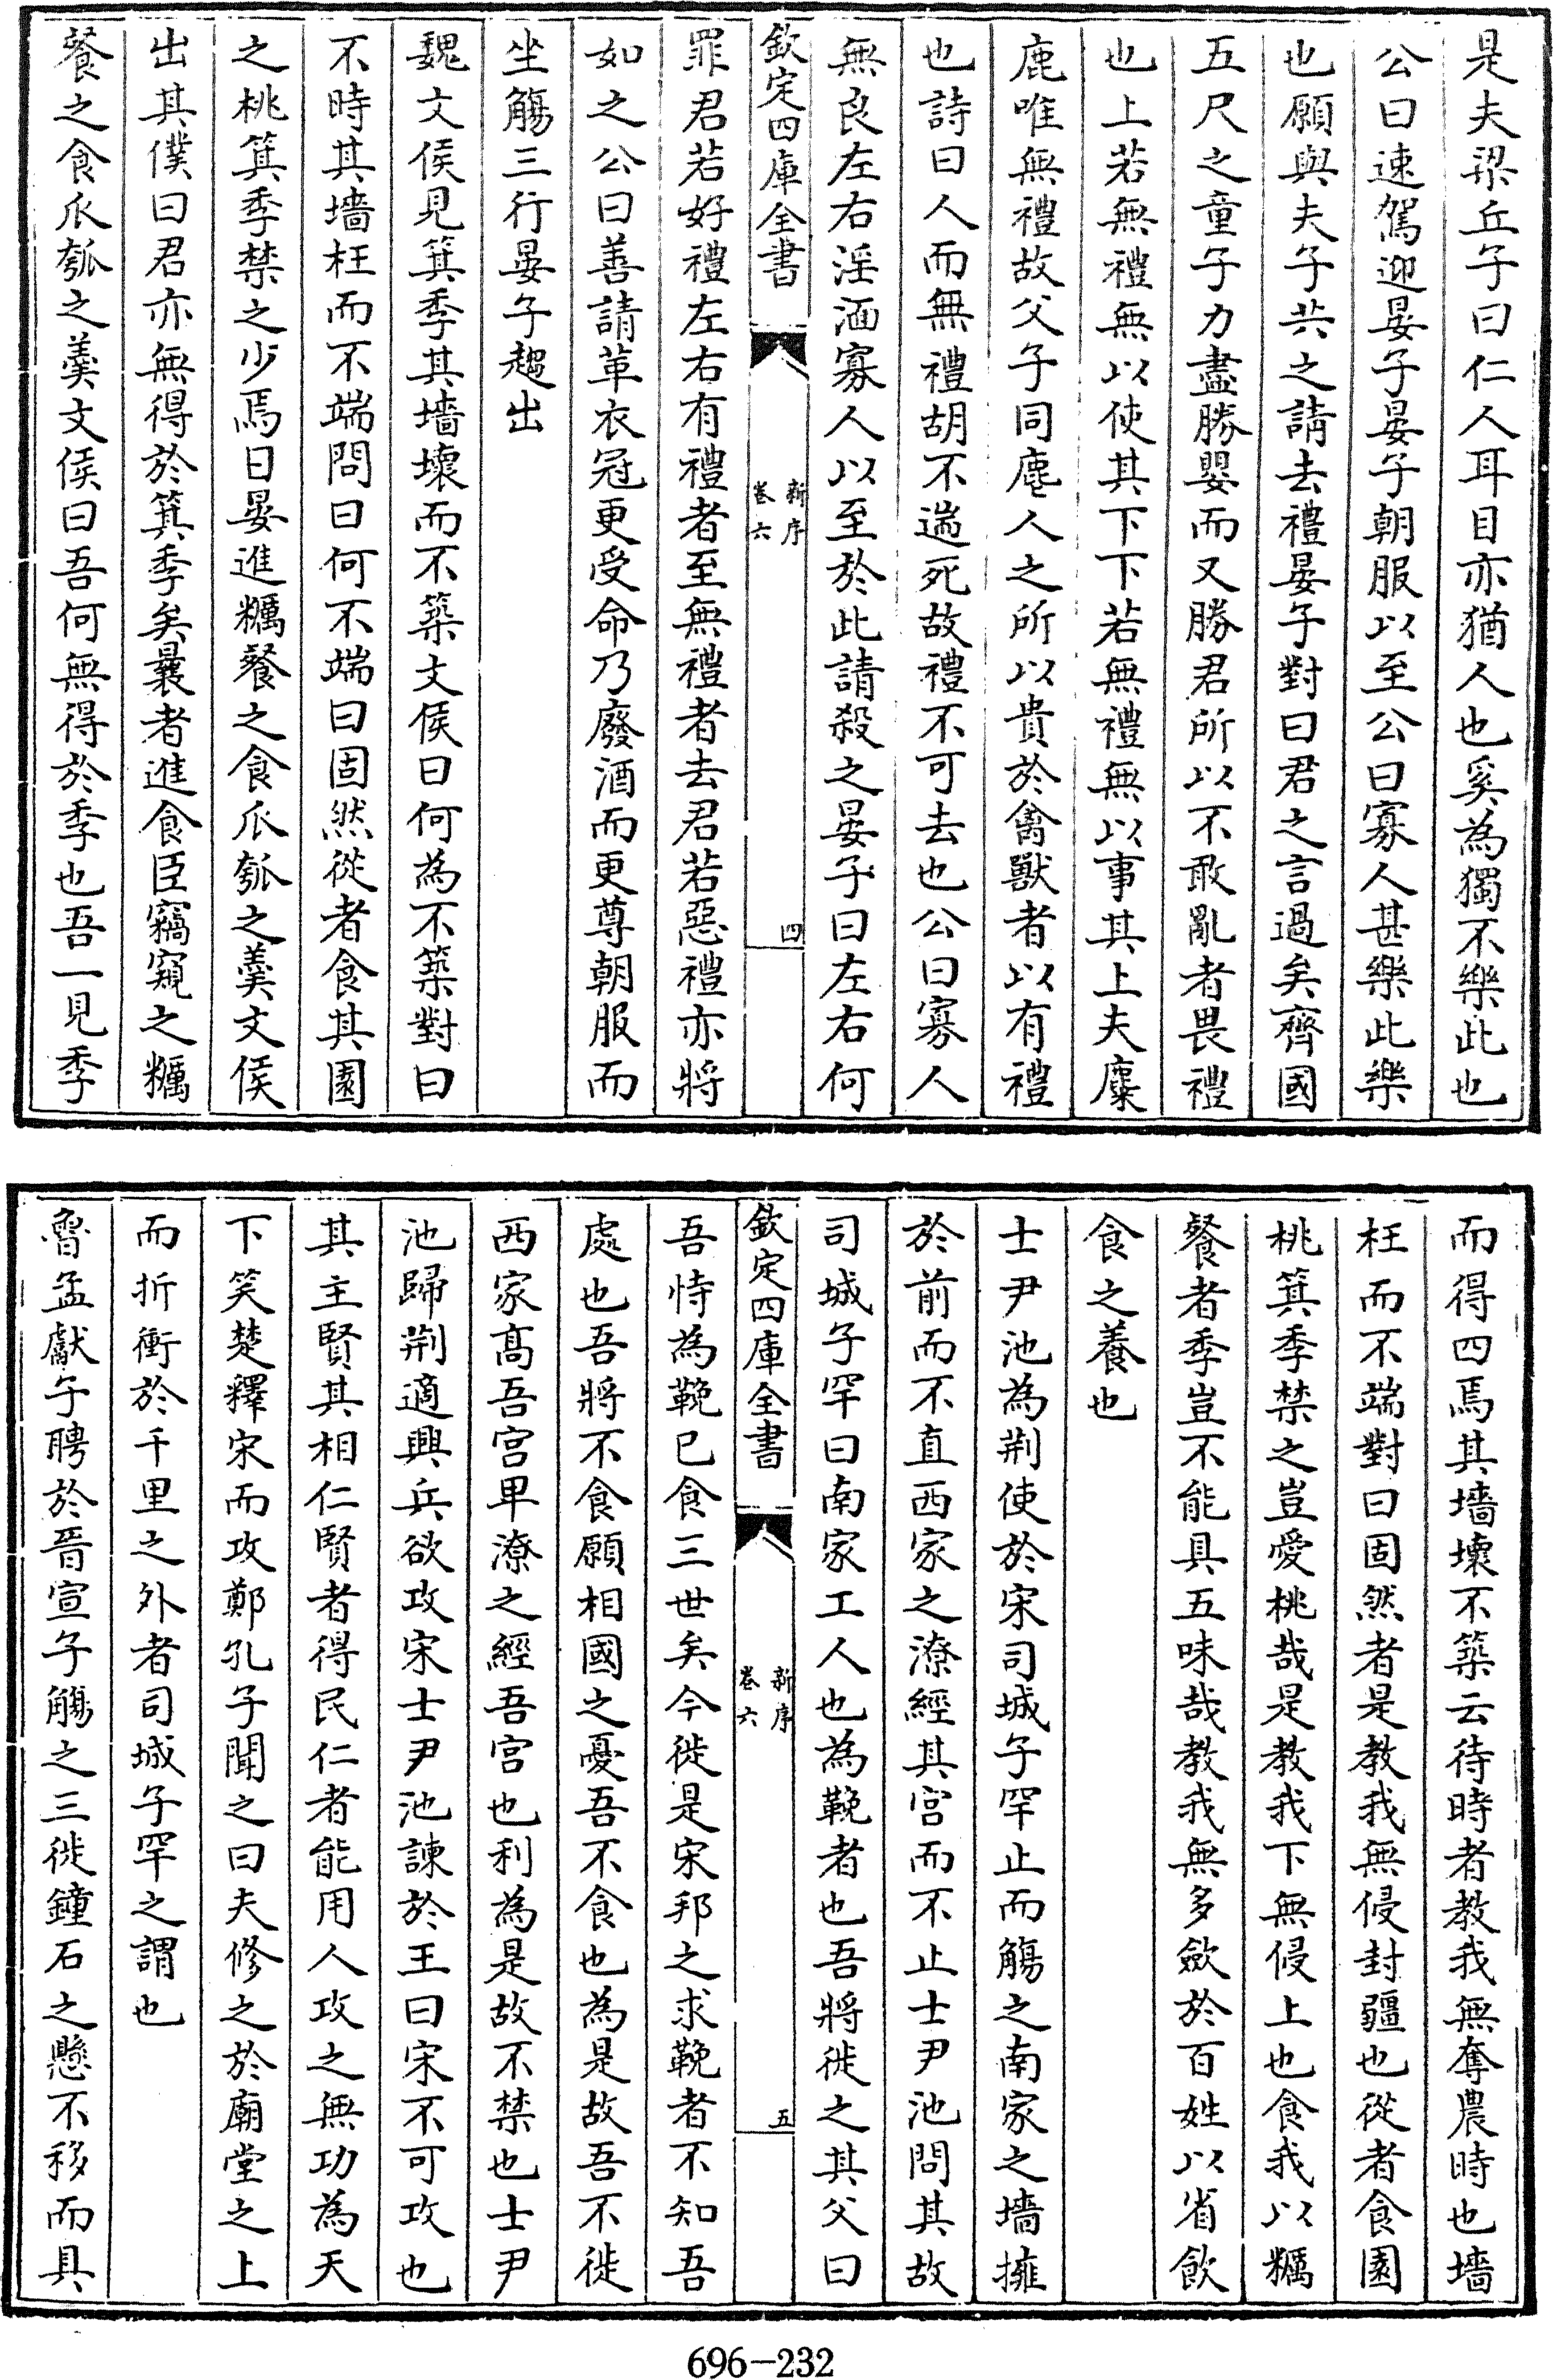 是夫梁丘子曰仁人耳目亦猶人也奚為獨不樂此也
公曰速駕迎晏子晏子朝服以至公曰寡人甚樂此樂
也願與夫子共之請去禮晏子對曰君之言過矣齊國
五尺之童子力盡勝嬰而又勝君所以不敢亂者畏禮
也上若無禮無以使其下下若無禮無以事其上夫麋
鹿唯無禮故父子同麀人之所以貴於禽獸者以有禮
也詩曰人而無禮胡不遄死故禮不可去也公曰寡人
無良左右淫湎寡人以至於此請殺之晏子曰左右何
欽定四庫全書
新序
卷六
四
罪君若好禮左右有禮者至無禮者去君若惡禮亦將
如之公曰善請革衣冠更受命乃廢酒而更尊朝服而
坐觴三行晏子趨出
魏文侯見箕季其墻壞而不築文侯曰何為不築對曰
不時其墻枉而不端問曰何不端曰固然從者食其園
之桃箕季禁之少焉日晏進糲餐之食瓜瓠之羹文侯
出其僕曰君亦無得於箕季矣曩者進食臣竊窺之糲
餐之食瓜瓠之羹文侯曰吾何無得於季也吾一見季
而得四焉其墻壞不築云待時者教我無奪農時也墻
枉而不端對曰固然者是教我無侵封疆也從者食園
桃箕季禁之豈愛桃哉是教我下無侵上也食我以糲
餐者季豈不能具五味哉教我無多斂於百姓以省飲
食之養也
士尹池為荆使於宋司城子罕止而觴之南家之墻擁
於前而不直西家之潦經其宫而不止士尹池問其故
司城子罕曰南家工人也為鞔者也吾將徙之其父曰
欽定四庫全書
新序
卷六
五
吾恃為鞔已食三世矣今徙是宋邦之求鞔者不知吾
處也吾將不食願相國之憂吾不食也為是故吾不徙
西家髙吾宫卑潦之經吾宫也利為是故不禁也士尹
池歸荆適興兵欲攻宋士尹池諫於王曰宋不可攻也
其主賢其相仁賢者得民仁者能用人攻之無功為天
下笑楚釋宋而攻鄭孔子聞之曰夫修之於廟堂之上
而折衝於千里之外者司城子罕之謂也
魯孟獻子聘於晉宣子觴之三徙鐘石之懸不移而具
696-232